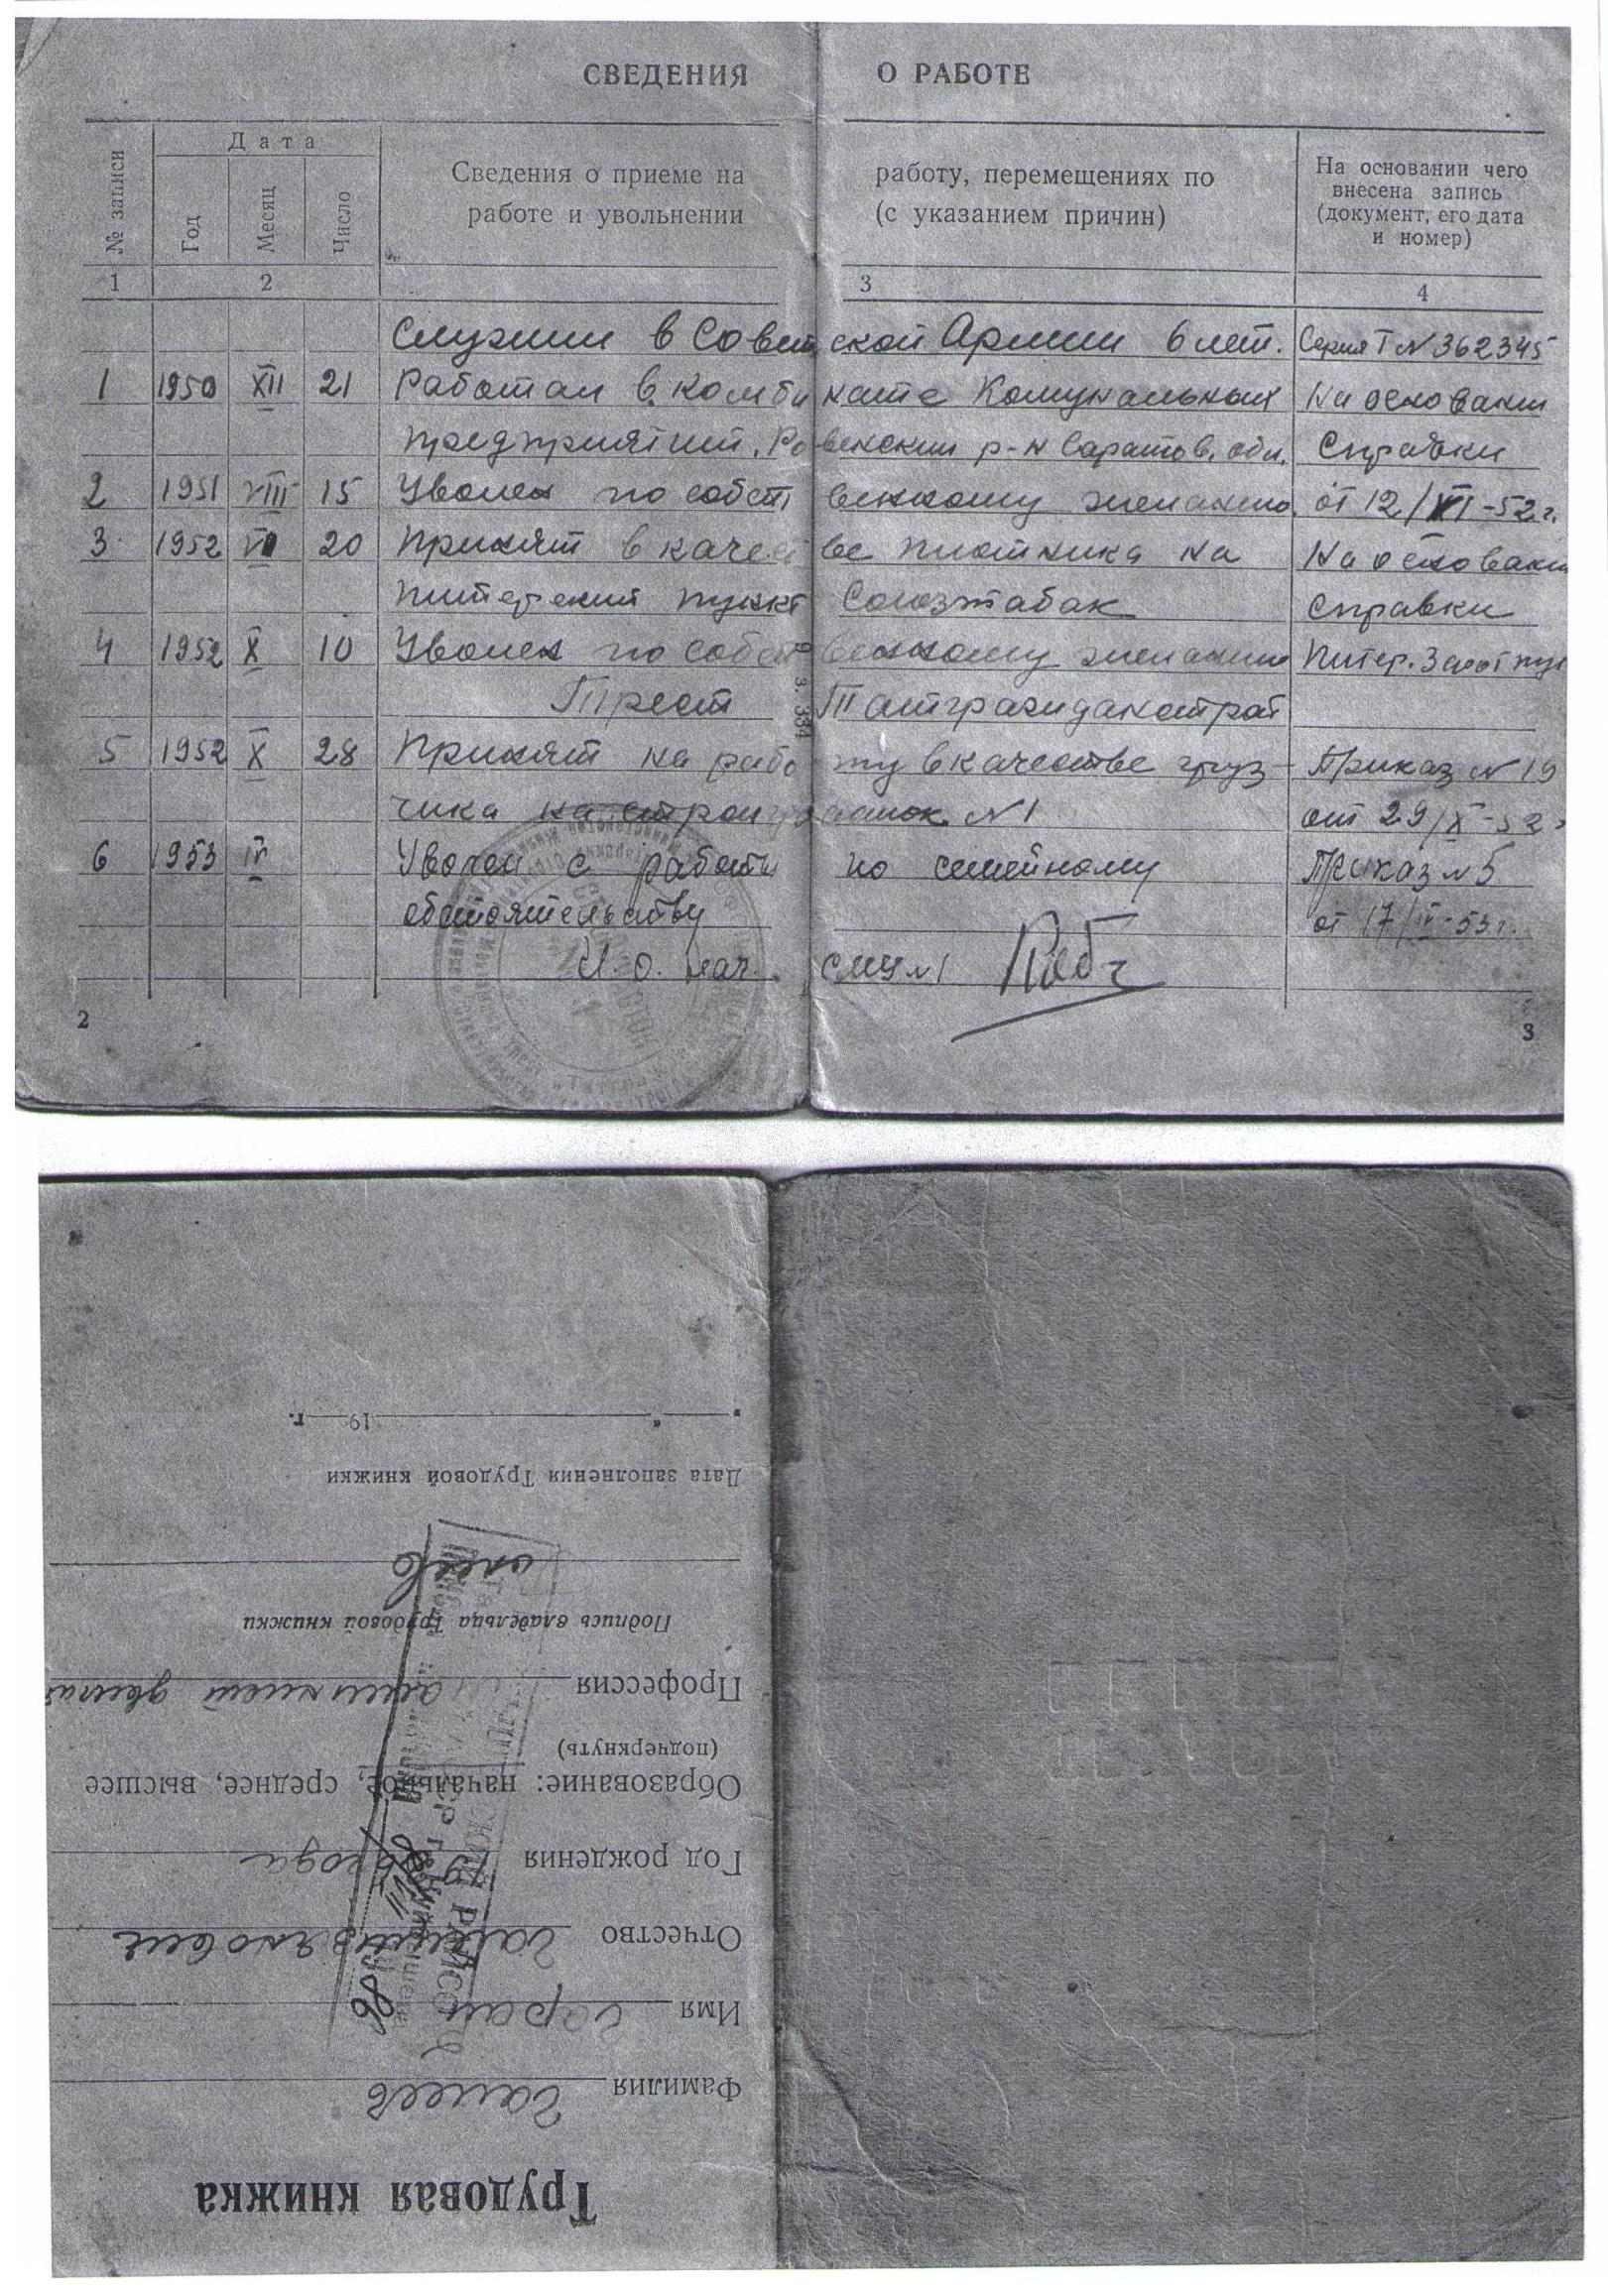 СВЕДЕНИЯ О РАБОТЕ
№ записи
Дата
Год
Месяц
Число
Сведения о приеме на работу, перемещениях по
работе и увольнении (с указанием причин)
На основании чего
внесена запись
(документ, его дата
и номер)
1 2 3 4
Служил в Советской Армии 6 лет. Серия Т N 362345
1 1950 XII 21 Работал в комбинате Комунальных На основании
предприятий. Ровенский р-н Саратов. обл. Справки
2 1951 VIII 15 Уволен по собственному желанию. от 12/XI-52 г.
3 1952 20 Принят в качестве плотника на На основании
Питерский пункт Союзтабак Справки
4 1952 X 10 Уволен по собственному желанию Питер. Загот
Трест
5 1952 X 28 Принят на работу в качестве груз- Приказ N 19
чика на N 1 от 29/X-52
6 1953 IV Уволен с работы по семейному Приказ N 5
обстоятельству от 17/IV-53 г.
И. о. нач. СМУ N 1
9 з. 334
2
3
Трудовая книжка
Фамилия Галеев
Имя
Отчество
Год рождения года
Образование: начальное, среднее, высшее
(подчеркнуть)
Профессия
Подпись владельца Трудовой книжки
Дата заполнения Трудовой книжки
" " 19 г.